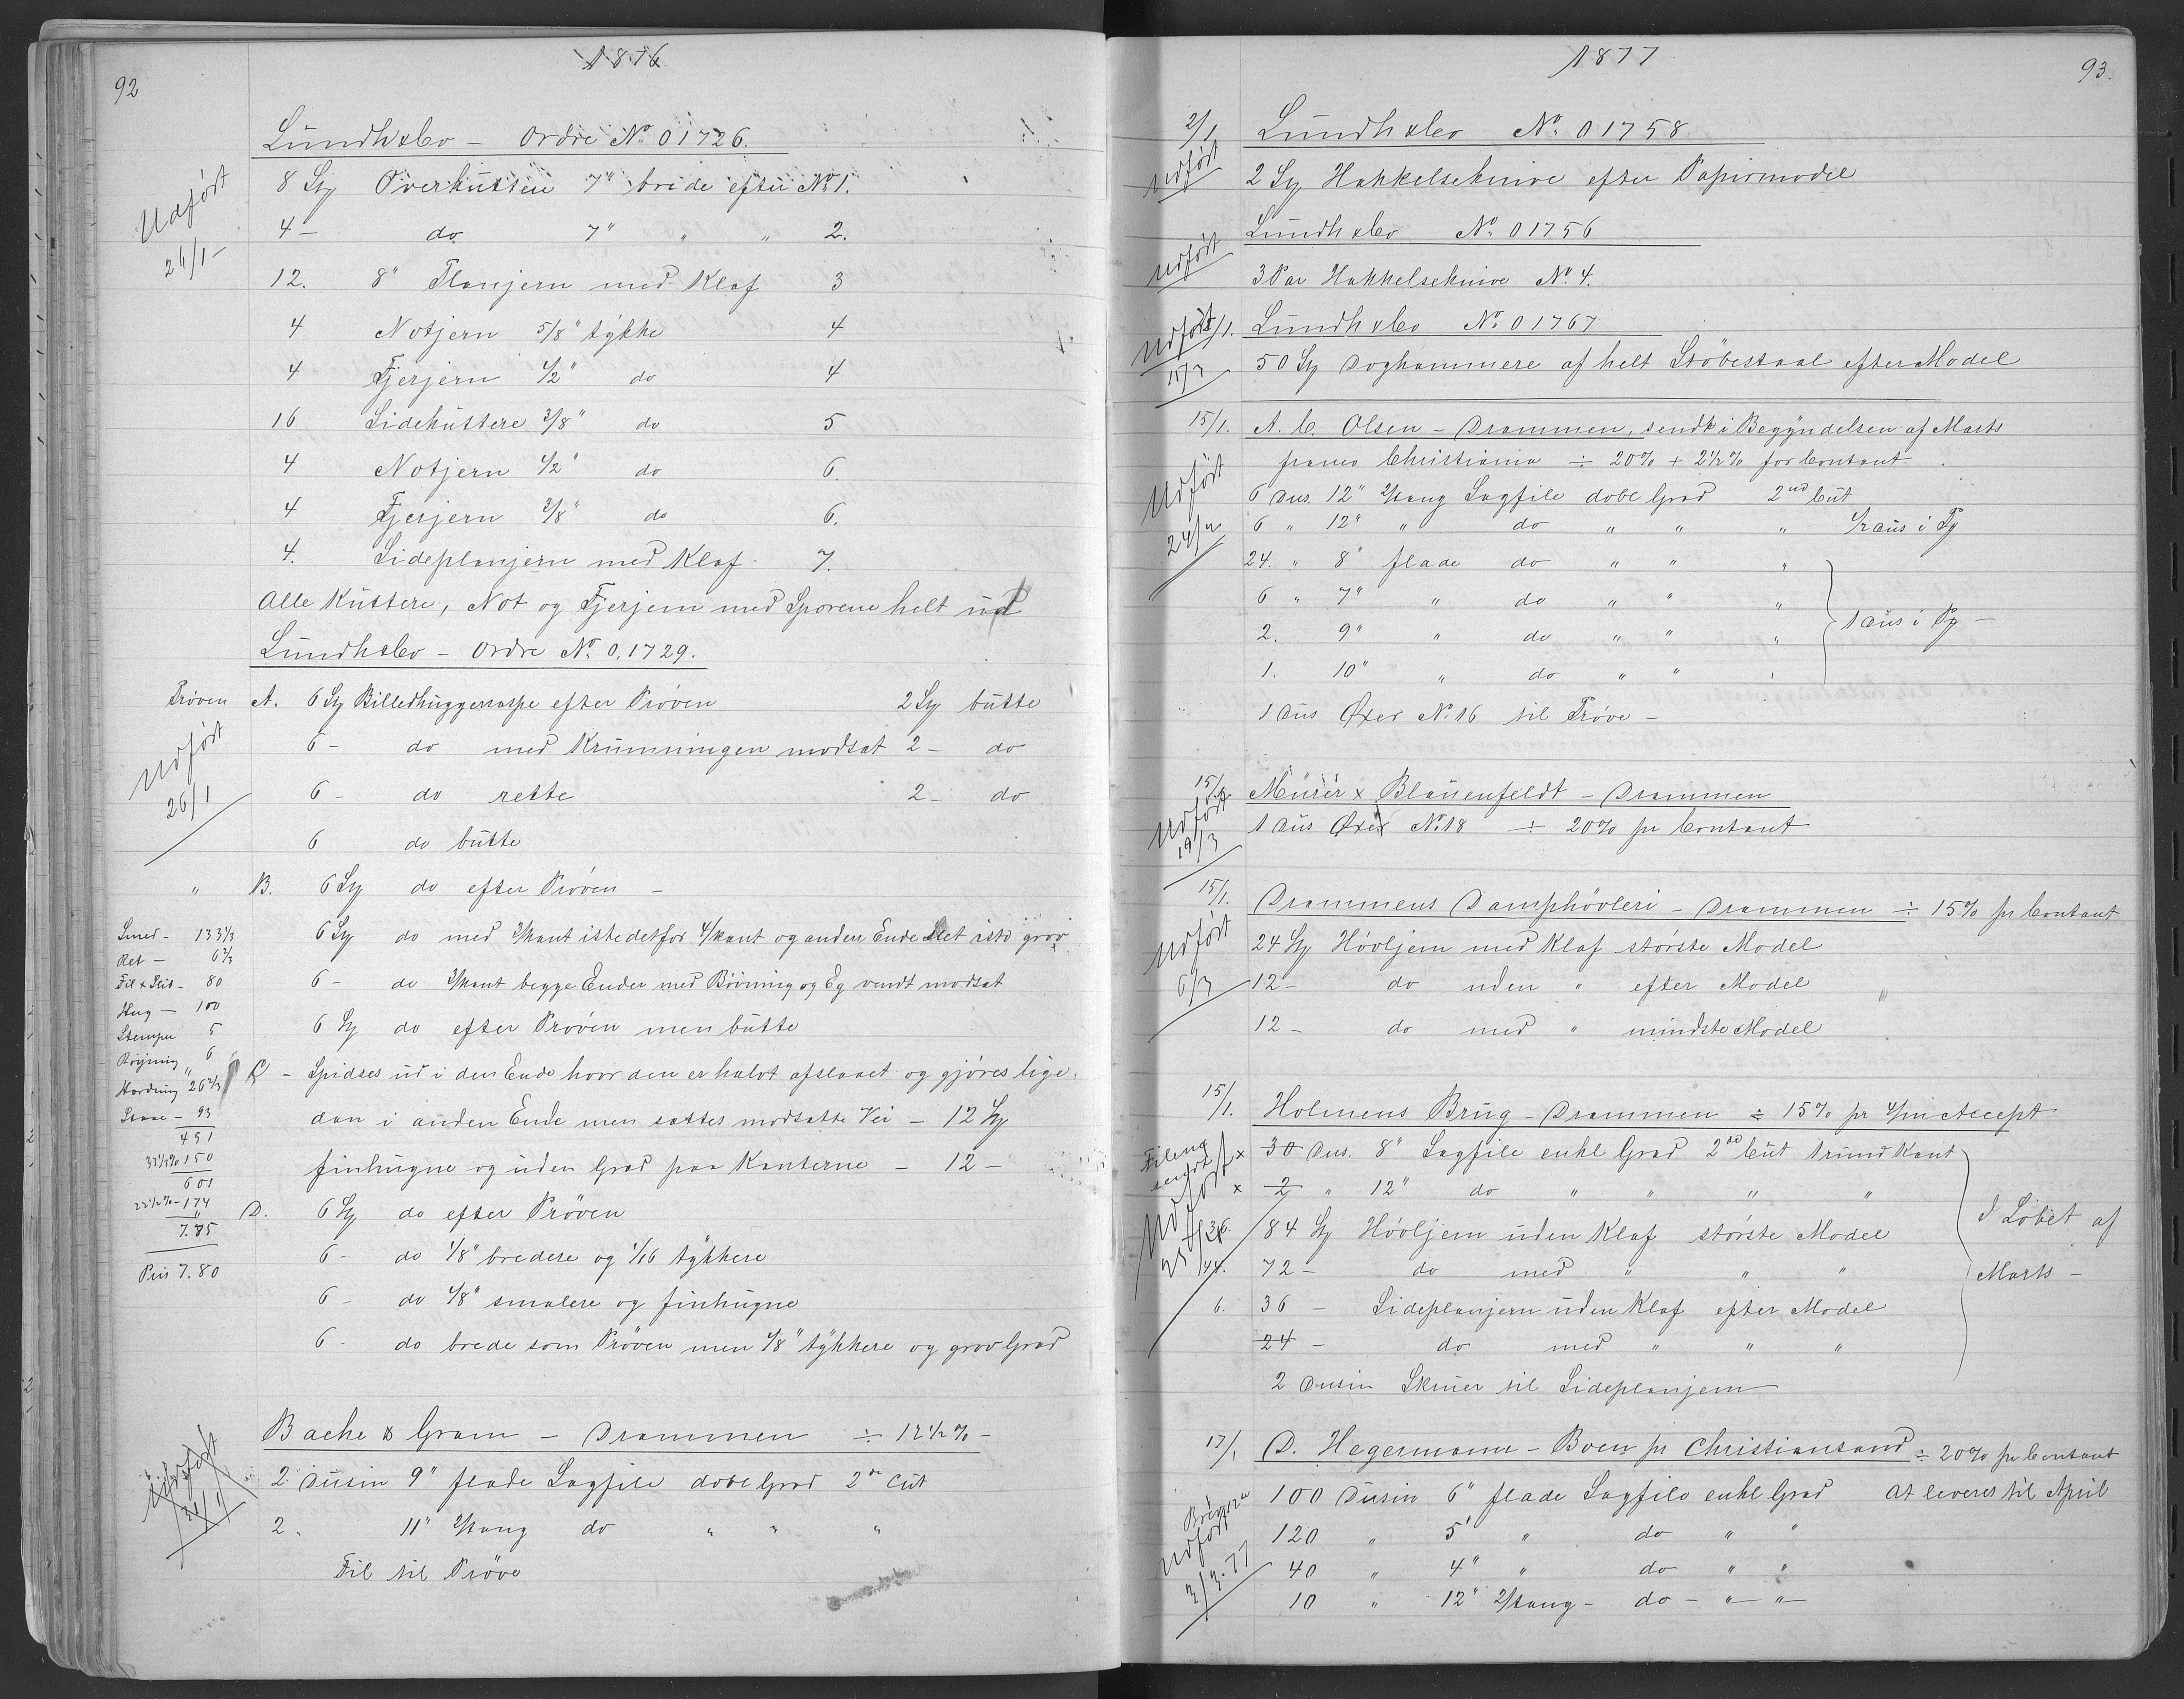 92
1876
Lundh & Co – Ordre No. 01726.
Udført 26/1 –
8 St Overkutten 7" brede efter No 1.
4 – do 7" " " 2.
12. 8" Planjern med Klaf 3
4 Notjern 5/8" tykke 4
4 Fjerjern 1/2" do 4
16 Sidekuttere 3/8" do 5
4 Notjern 1/2" do 6.
4 Fjerjern 3/8" do 6.
4. Sideplanjern med Klaf 7.
Alle Kuttere, Not og Fjerjern med Sporene helt ud
Lundh & Co – Ordre No. 0.1729.
Prøven A. 6 St Billedhuggerraspe efter Prøven 2 St butte
Udført 26/1
6 – do med Krumningen modsat 2 – do
6 – do rette 2 – do
6 do butte
" B. 6 St do efter Prøven –
6 St do med 3/kant istedetfor 4/kant og anden Ende slet isto grov
6 – do 3/kant begge Ender med Bøining og Eg vendt modsat
6 St do efter Prøven men butte
C – Spidses ud i den Ende hvor den er halvt afslaaet og gjøres lige
dan i anden Ende men sættes modsatte Vei – 12 St
finhugne og uden Grad paa Kanterne – 12 –
D. 6 St do efter Prøven
6 – do 1/8" bredere og 1/16 tykkere
6 – do 1/8" smalere og finhugne
6 – do brede som Prøven men 1/8" tykkere og grov Grad
Smed – 133 1/3
Ret – 6 2/3
Fil & Slib – 80
Hug – 100
Stempen 5
Bøining 6
Hærdning 26 2/3
93
451
33 1/3% 150
601
174
7.85
Pris 7.80
Bache & Gram – Drammen ÷ 12 1/2 % –
Udført
2 Dusin 9" flade Sagfile dobl Grad 2de Cut
2. 11" 2/kang do " " "
Fil til Prøve
1877
93.
2/1. Lundh & Co No. 01758
Udført
2 St Hakkelseknive efter Papirmodel
Lundh & Co No. 01756
Udført
3 Par Hakkelseknive No. 4.
Lundh & Co No. 01767
Udført 15/3
50 St Doghammere af helt Støbestaal efter Model
15/1. A. C. Olsen – Drammen, sendt i Begyndelsen af Marts
franco Christiania ÷ 20% + 2 1/2% for Contant
Udført
6 Dus. 12" 2/kang Sagfile dobl Grad 2nd Cut
6 " 12" " do " " " 1/2 Dus i Py
24. " 8" flade do " " "
6 " 7" " do " " "
2. 9" " do " " " 1 Dus i Py –
1. 10" " do " " "
1 Dus Øxer No. 16 til Prøve –
15/1. Mürer & Blauenfeldt – Drammen
Udført 19/3
1 Dus Øxer No. 18 ÷ 20% pr Contant
15/1. Drammens Damphøvleri – Drammen ÷ 15% pr Contant
Udført 6/3
24 St Høvljern med Klaf største Model
12 – do uden " efter Model
12 – do med " mindste Model
15/1. Holmens Brug – Drammen ÷ 15% pr 4/m Accept
Filene sendt
Udført
x 30 Dus. 8" Sagfile enkl Grad 2nd Cut 1 rund Kant
x 2 " 12" do " " " "
36. 84 St Høvljern uden Klaf største Model
144. 72 – do med " " "
6. 36 – Sideplanjern uden Klaf efter Model
24 – do med " " "
I Løbet af
Marts –
2 Dusin Skruer til Sideplanjern
17/1 D. Hegermann – Boen pr Christiansand ÷ 20% pr Contant
Udført 3/3.77
100 Dusin 6" flade Sagfile enkl Grad At leveres til April
120 " 5" " do " "
40 " 4" " do " "
10 " 12" 2/kang – do – " – " –